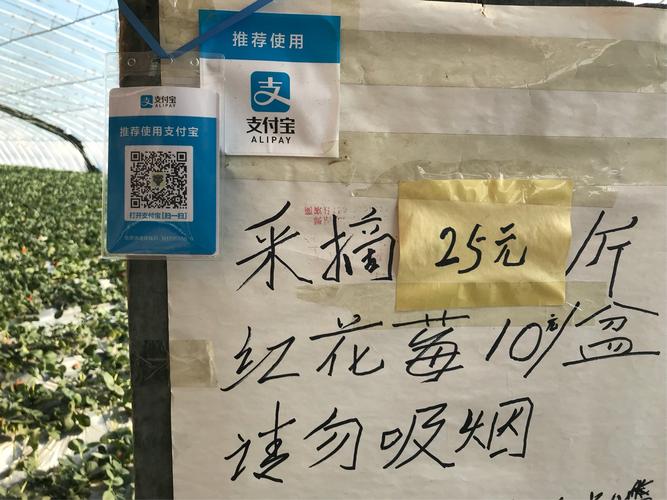 推荐使用
支付宝
ALIPAY
支付宝
ALIPAY
推荐使用支付宝
打开支付宝[扫一扫]
采摘 25元 斤
红花莓10元/盆
请勿吸烟